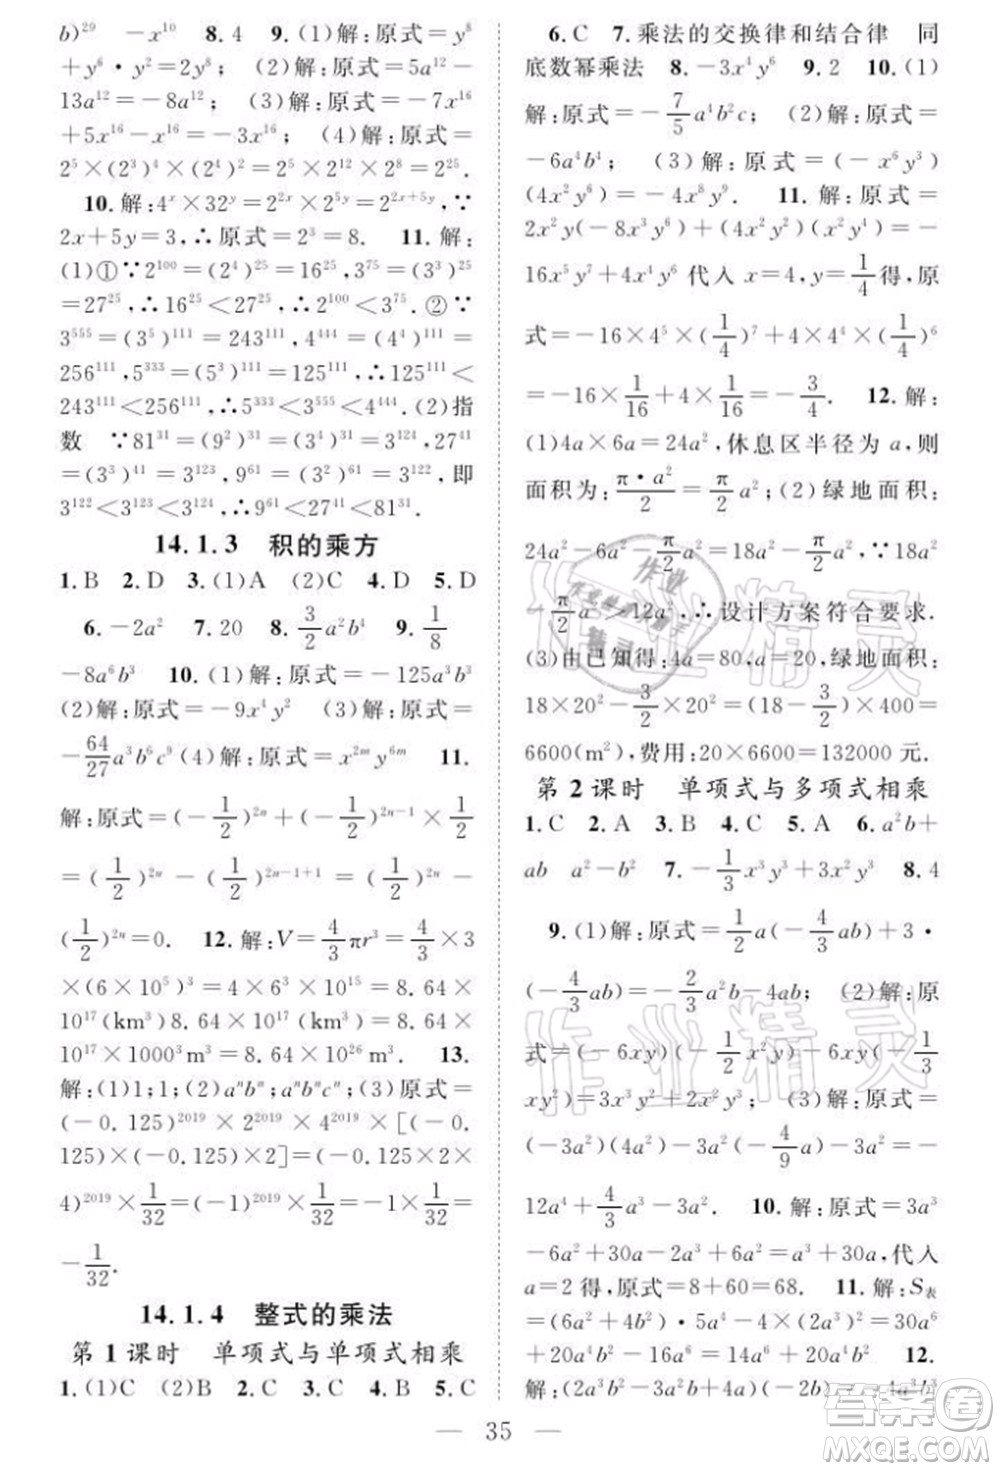 b)²⁹ －x¹⁰ 8. 4 9. (1)解:原式＝y⁸
＋y⁶·y²＝2y⁸; (2)解:原式＝5a¹²－
13a¹²＝－8a¹²; (3)解:原式＝－7x¹⁶
＋5x¹⁶－x¹⁶＝－3x¹⁶; (4)解:原式＝
2⁵×(2³)⁴×(2⁴)²＝2⁵×2¹²×2⁸＝2²⁵.
10. 解:4ˣ×32ʸ＝2²ˣ×2⁵ʸ＝2²ˣ⁺⁵ʸ,∵
2x＋5y＝3,∴原式＝2³＝8. 11. 解:
(1)①∵2¹⁰⁰＝(2⁴)²⁵＝16²⁵,3⁷⁵＝(3³)²⁵
＝27²⁵,∴16²⁵＜27²⁵,∴2¹⁰⁰＜3⁷⁵.②∵
3⁵⁵⁵＝(3⁵)¹¹¹＝243¹¹¹,4⁴⁴⁴＝(4⁴)¹¹¹＝
256¹¹¹,5³³³＝(5³)¹¹¹＝125¹¹¹,∴125¹¹¹＜
243¹¹¹＜256¹¹¹,5³³³＜3⁵⁵⁵＜4⁴⁴⁴.(2)指
数 ∵81³¹＝(9²)³¹＝(3⁴)³¹＝3¹²⁴,27⁴¹
＝(3³)⁴¹＝3¹²³,9⁶¹＝(3²)⁶¹＝3¹²²,即
3¹²²＜3¹²³＜3¹²⁴,∴9⁶¹＜27⁴¹＜81³¹.
14.1.3 积的乘方
1. B 2. D 3. (1)A (2)C 4. D 5. D
6. －2a² 7. 20 8. 3/2 a²b⁴ 9. 1/8
－8a⁶b³ 10. (1)解:原式＝－125a³b³
(2)解:原式＝－9x⁴y² (3)解:原式＝
－64/27 a³b⁶c⁹ (4)解:原式＝x²ᵐy⁶ᵐ 11.
解:原式＝(－1/2)²ⁿ＋(－1/2)²ⁿ⁻¹×1/2
＝(1/2)²ⁿ－(1/2)²ⁿ⁻¹⁺¹＝(1/2)²ⁿ－
(1/2)²ⁿ＝0. 12. 解:V＝4/3 πr³＝4/3×3
×(6×10⁵)³＝4×6³×10¹⁵＝8.64×
10¹⁷(km³)8.64×10¹⁷(km³)＝8.64×
10¹⁷×1000³m³＝8.64×10²⁶m³. 13.
解:(1)1;1;(2)aⁿbⁿ;aⁿbⁿcⁿ;(3)原式＝
(－0.125)²⁰¹⁹×2²⁰¹⁹×4²⁰¹⁹×[(－0.
125)×(－0.125)×2]＝(－0.125×2×
4)²⁰¹⁹×1/32＝(－1)²⁰¹⁹×1/32＝－1×1/32＝
－1/32.
14.1.4 整式的乘法
第1课时 单项式与单项式相乘
1. (1)C (2)B 2. C 3. B 4. B 5. C
6. C 7. 乘法的交换律和结合律 同
底数幂乘法 8. －3x⁴y⁶ 9. 2 10. (1)
解:原式＝－7/5 a⁴b²c; (2)解:原式＝
－6a⁴b⁴; (3)解:原式＝(－x⁶y³)
(4x²y⁶)＝－4x⁸y⁹. 11. 解:原式＝
2x²y(－8x³y⁶)＋4x⁴y⁶＝－
16x⁵y⁷＋4x⁴y⁶代入x＝4,y＝1/4得,原
式＝－16×4⁵×(1/4)⁷＋4×4⁴×(1/4)⁶
＝－16×1/16＋4×1/16＝－3/4. 12. 解:
(1)4a×6a＝24a²,休息区半径为a,则
面积为:π·a²/2＝π/2 a²;(2)绿地面积:
24a²－6a²－π/2 a²＝18a²－π/2 a²,∵18a²
－π/2 a²＞12a²,∴设计方案符合要求.
(3)由已知得:4a＝80,a＝20,绿地面积:
18×20²－3/2×20²＝(18－3/2)×400＝
6600(m²),费用:20×6600＝132000元.
第2课时 单项式与多项式相乘
1. C 2. A 3. B 4. C 5. A 6. a²b＋
ab a²－b² 7. －1/3 x³y³＋3x³y⁴ 8. 4
9. (1)解:原式＝1/2 a(－4/3 ab)＋3·
(－4/3 ab)＝－2/3 a²b－4ab; (2)解:原
xy²)＝－3x²y＋2x²y³; (3)解:原式＝
(－3a²)(4a²)－(－3a²)(－4/9 a)＋3a²＝－
12a⁴＋4/3 a³－3a². 10. 解:原式＝3a³
－6a²＋30a－2a³＋6a²＝a³＋30a,代入
a＝2得,原式＝8＋60＝68. 11. 解:S表
20ab²－16a²b－10ab²
解:(2a³b²－3a²b＋4a)
35
作业精灵
作业精灵
答案圈
MXQE.COM